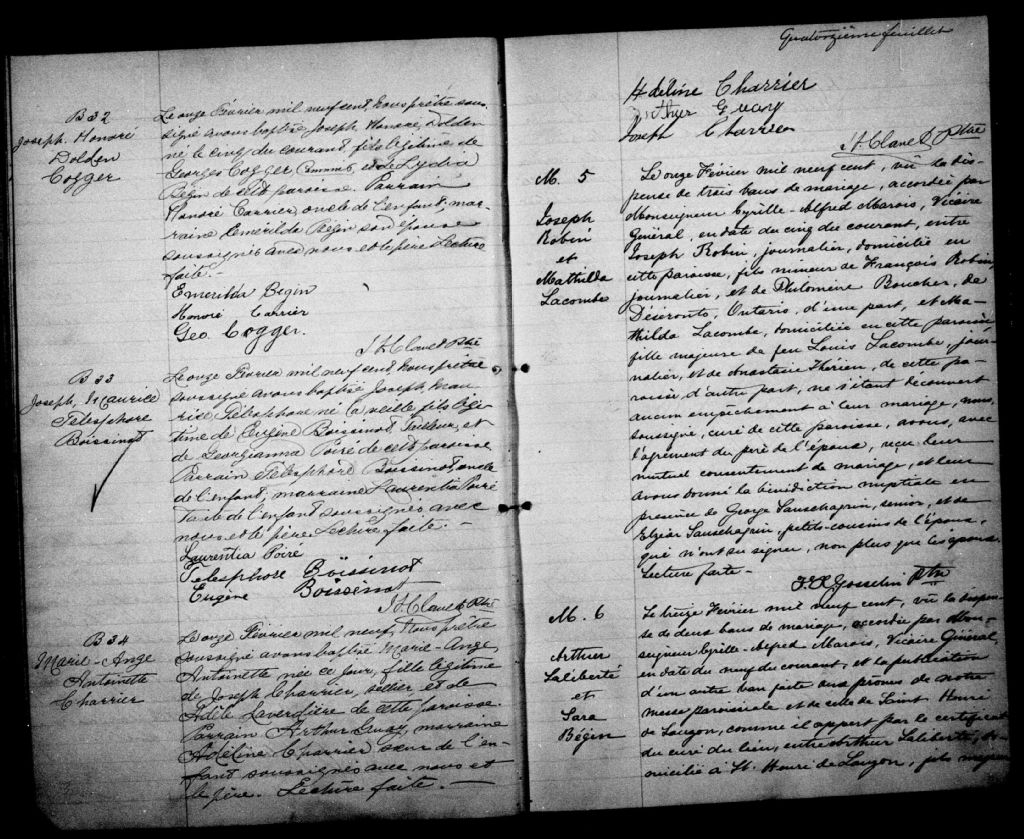 B 32
Joseph. Honoré
Dolden
Cogger
Le onze Février mil neuf cent, nous prêtre sous-
signé avons baptisé Joseph Honoré, Dolden
né le cinq du courant, fils légitime de
Georges Cogger Commis, et de Lydia
Bégin de cette paroisse. Parrain
Honoré Carrier, oncle de l'enfant; mar-
raine Emerilda Bégin son épouse
soussignés avec nous et le père Lecture
faite. -
Emerilda Begin
Honoré Carrier
Geo. Cogger.
Ptre
B 33
Joseph, Maurice
Télesphore
Boissinot
Le onze Février mil neuf cent, nous prêtre
soussigné avons baptisé Joseph, Mau-
rice Télesphore né la veille fils légi-
time de Eugène Boissinot, Tailleur, et
de Georgianna Poiré de cette paroisse
Parrain Télesphore Boissinot oncle
de l'enfant; marraine Laurentia Poiré
Tante de l'enfant soussignés avec
nous et le père. Lecture faite. -
Laurentia Poire
Telesphore Boissinot
Eugène Boissinot
Ptre
B 34
Marie-Ange
Antoinette
Charrier
Le onze Février mil neuf, Nous prêtre
soussigné avons baptisé Marie-Ange
Antoinette née ce jour, fille légitime
de Joseph Charrier, sellier, et de
Adèle Laverdière de cette paroisse.
Parrain Arthur Guay, marraine
Adéline Charrier sœur de l'en-
fant soussignés avec nous et
le père. Lecture faite. -
Quatorzième feuillet
Adeline Charrier
Arthur Guay
Joseph Charrier
Ptre
M. 5
Joseph
Robin
et
Mathilda
Lacombe
Le onze Février mil neuf cent, vû la dis-
pense de trois bans de mariage, accordée par
Monseigneur Cyrille-Alfred Marois, Vicaire
Général, en date du cinq du courant, entre
Joseph Robin, journalier, domicilié en
cette paroisse, fils mineur de François Robin,
journalier, et de Philomène Boucher, de
Déseronto, Ontario, d'une part, et Ma-
thilda Lacombe, domiciliée en cette paroisse
fille majeure de feu Louis Lacombe, jour-
nalier, et de Anastasie Therien, de cette pa-
roisse d'autre part, ne s'étant découvert
aucun empêchement à leur mariage, nous,
soussigné, curé de cette paroisse, avons, avec
l'agrément du père de l'époux, reçu leur
mutuel consentement de mariage, et leur
avons donné la bénédiction nuptiale en
présence de George Sanschagrin, senior, et de
Elzéar Sanschagrin, petits-cousins de l'époux,
qui n'ont su signer, non plus que les époux.
Lecture faite -
Gosselin Ptre
M. 6
Arthur
Laliberté
et
Sara
Bégin
Le treize Février mil neuf cent, vû la dispen-
se de deux bans de mariage, accordée par Mon-
seigneur Cyrille-Alfred Marois, Vicaire Général,
en date du neuf du courant, et la publication
d'un autre ban faite aux prônes de notre
messe paroissiale et de celle de Saint Henri
de Lauzon, comme il appert par le certificat
du curé du lieu, entre Arthur Laliberté, do-
micilié à St. Henri de Lauzon, fils majeur